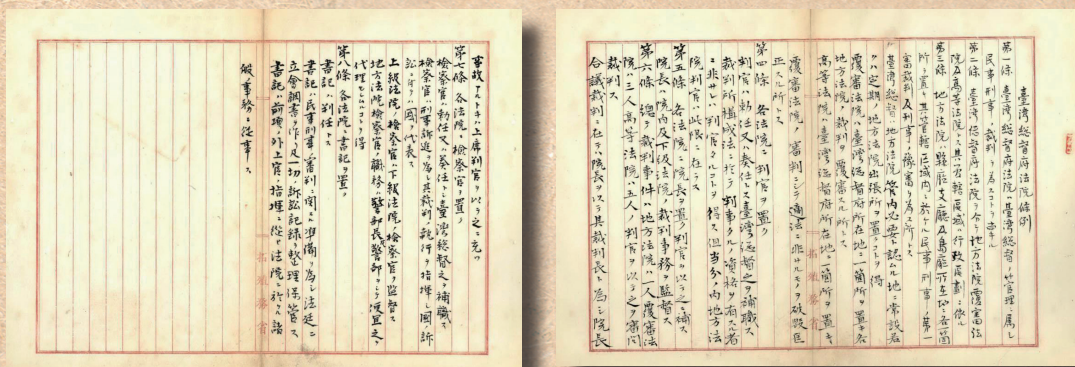 臺灣總督府法院條例
第一條 臺灣總督府法院ハ臺灣總督ノ管理ニ屬シ
民事刑事ノ裁判ヲ為スコトヲ掌ル
第二條 臺灣總督府法院ヲ分テ地方法院覆審法
院及高等法院トス其管轄區域ハ行政區劃ニ依ル
第三條 地方法院ハ縣廳支廳及島廳所在地ニ各一箇
所ヲ置キ其管轄區域内ニ於ケル民事刑事ノ第一
審裁判及刑事ノ豫審ヲ為ス所トス
臺灣總督ハ地方法院管内必要ト認ムル地ニ常設若
クハ定期ノ地方法院出張所ヲ置クコトヲ得
覆審法院ハ臺灣總督府所在地ニ一箇所ヲ置キ各
地方法院ノ裁判ヲ覆審スル所トス
高等法院ハ臺灣總督府所在地ニ一箇所ヲ置キ
覆審法院ノ審判ニシテ適法ニ非サルモノヲ破毀匡
正スル所トス
第四條 各法院ニ判官ヲ置ク
判官ハ勅任又ハ奏任トス臺灣總督之ヲ補職ス
裁判所構成法ニ於テ判事タルノ資格ヲ有スル者
ニ非サレハ判官タルコトヲ得ス但當分ノ内地方法
院判官ハ此限ニ在ラス
第五條 各法院ニ院長ヲ置ク判官ヲ以テ之ヲ補ス
院長ハ院内及下級法院ノ裁判事務ヲ監督ス
第六條 總テ裁判事件ハ地方法院ハ一人覆審法
院ハ三人高等法院ハ五人ノ判官ヲ以テ之ヲ審問
裁判ス
合議裁判ニ在テハ院長ヲ以テ其裁判長ト為シ院長
事故アルトキハ上席判官ヲ以テ之ニ充ツ
第七條 各法院ニ檢察官ヲ置ク
檢察官ハ勅任又ハ奏任トシ臺灣總督之ヲ補職ス
檢察官ハ刑事訴追ヲ為シ其裁判ノ執行ヲ指揮シ國ノ訴
訟ニ付テハ國ヲ代表ス
上級法院ノ檢察官ハ下級法院ノ檢察官ヲ監督ス
地方法院檢察官ノ職務ハ警部長警部ヲシテ便宜之ヲ
代理セシムルコトヲ得
第八條 各法院ニ書記ヲ置ク
書記ハ判任トス
書記ハ民事刑事ノ審判ニ關スル準備ヲ為シ法廷ニ
立會調書ヲ作リ及一切ノ訴訟記録ヲ整理保管ス
書記ハ前項ノ外上官ノ指揮ニ從ヒ法院ニ於ケル諸
般ノ事務ニ從事ス
拓殖務省
拓殖務省